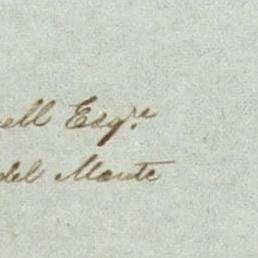 ell Esqre
del Monte